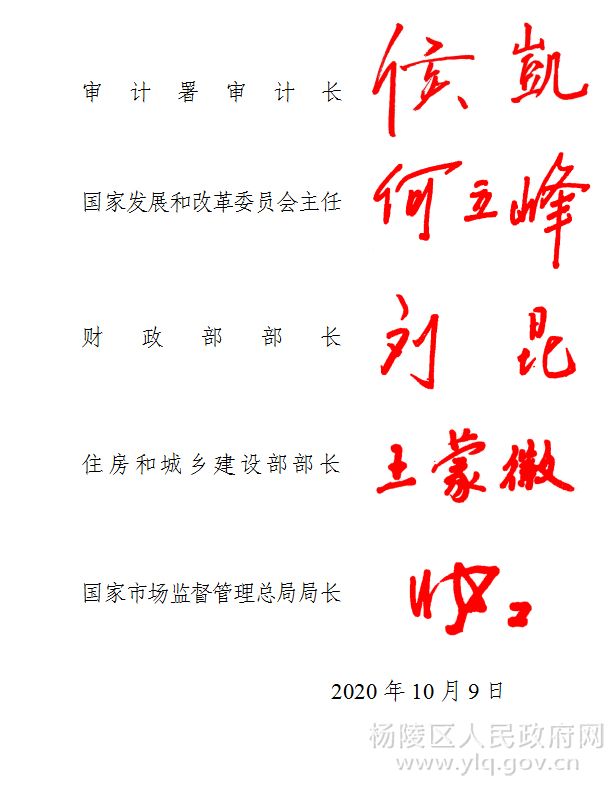 审计署审计长 侯凯
国家发展和改革委员会主任 何立峰
财政部部长 刘昆
住房和城乡建设部部长 王蒙徽
国家市场监督管理总局局长
2020年10月9日
杨陵区人民政府网
www.ylq.gov.cn